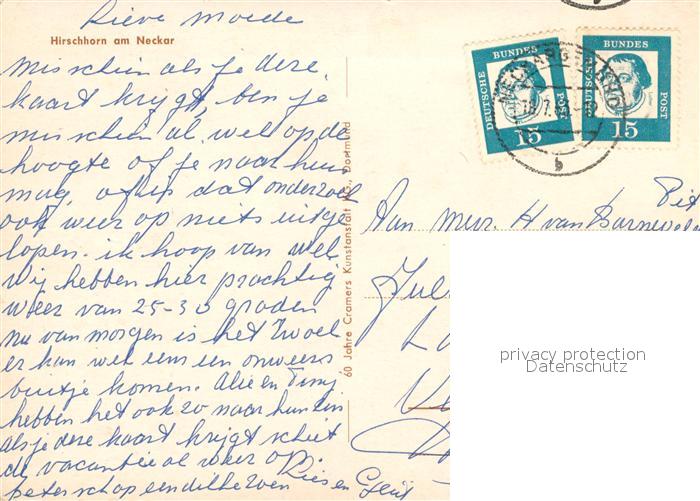 Lieve Moede
Hirschhorn am Neckar
misschien als je deze
kaart krijgt, ben je
misschien al wel op de
hoogte of je naar huis
mag, of is dat onderzoek
ook weer op niets uitge
lopen. ik hoop van wel.
Wij hebben hier prachtig
weer van 25-30 graden
nu van morgen is het zwoel
er kan wel eens een onweers
buitje komen. Alie en Timy
hebben het ook zo naar hun zin
als je deze kaart krijgt schiet
de vacantie al weer op.
Beterschap een dikke zoen
Ries en Gerrit
60 Jahre Cramers Kunstanstalt KG., Dortmund
DEUTSCHE BUNDES POST 15
DEUTSCHE BUNDES POST 15
b
Aan mevr. H van Barneveld
Jul
privacy protection
Datenschutz